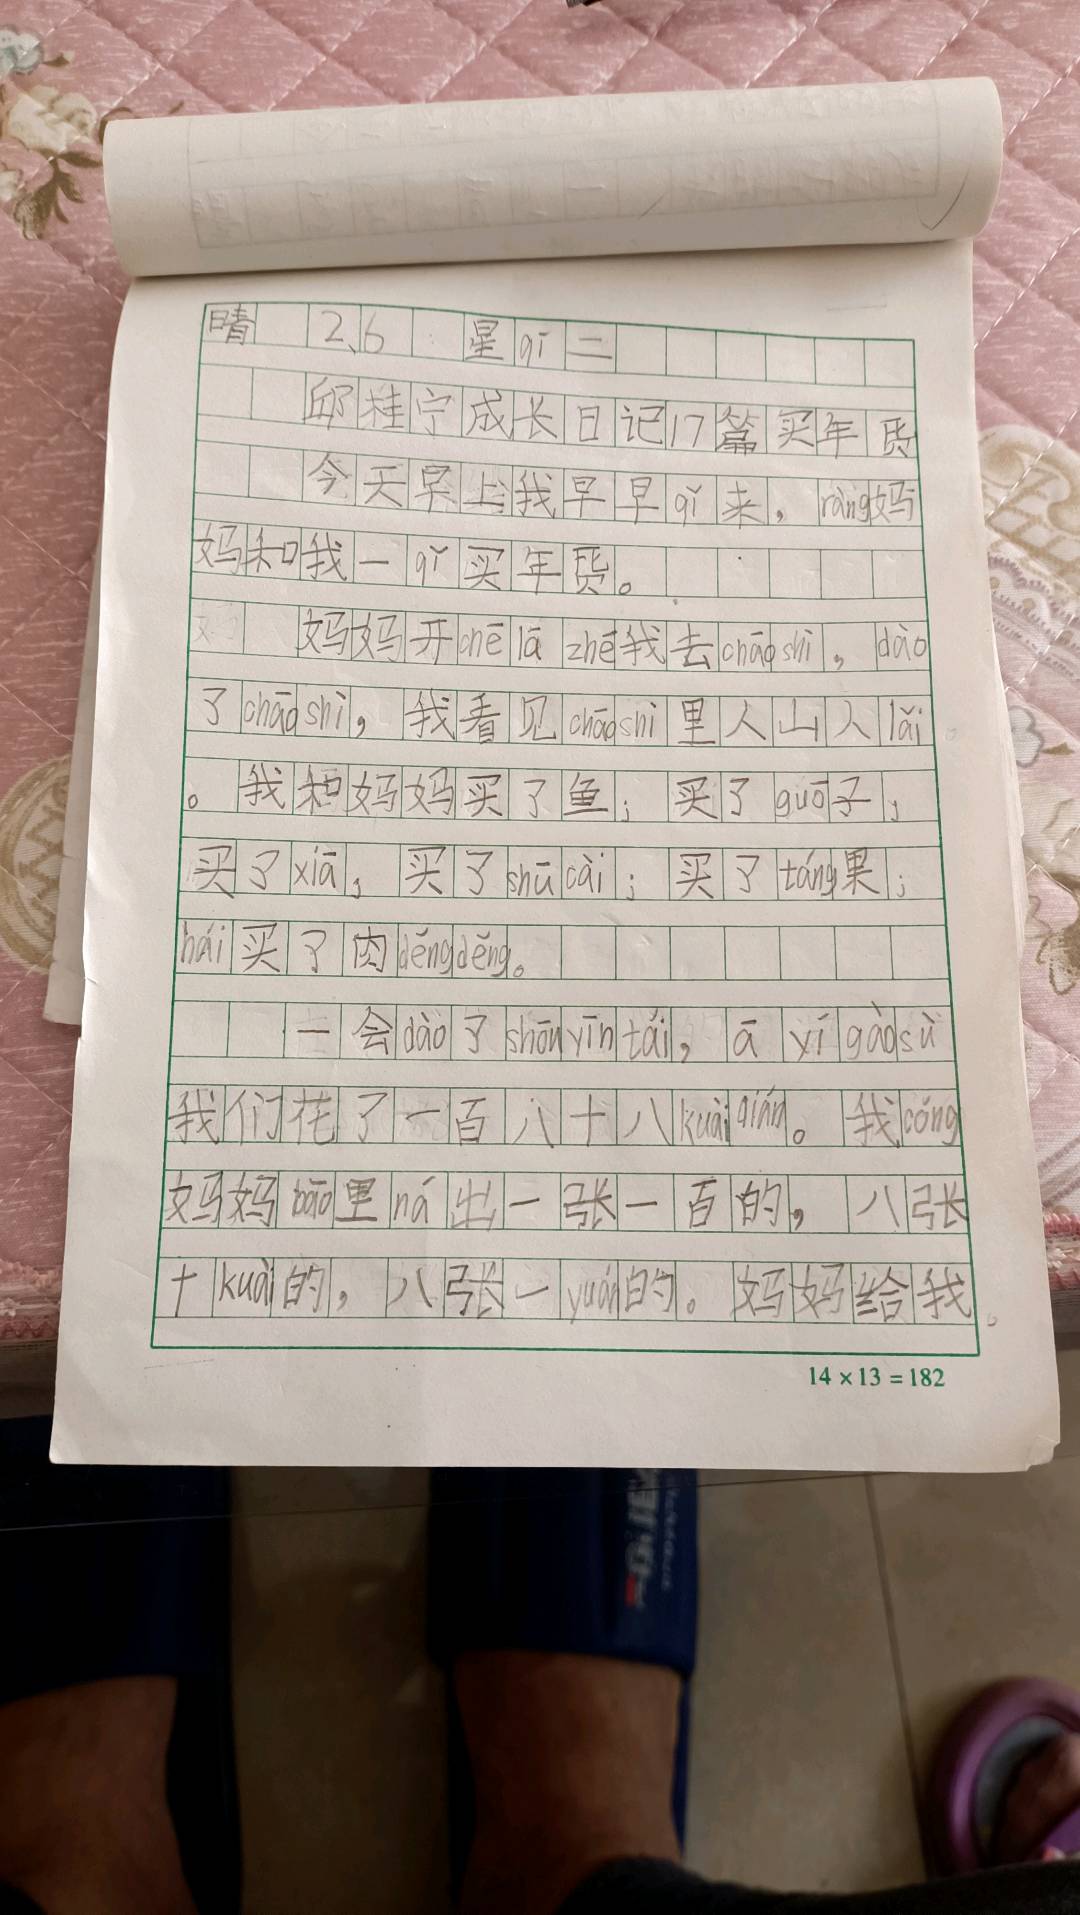 晴 2、6 星qī二
邱桂宁成长日记17篇买年货
今天早上我早早qǐ来，ràng妈
妈和我一qǐ买年货。
妈妈开chē lā zhē我去chāoshì，dào
了chāoshì，我看见chāoshì里人山人lǎi
。我和妈妈买了鱼；买了guō子；
买了xiā；买了shū cài；买了táng果；
hái买了肉děngděng。
一会dào了shōu yīn tái，ā yí gào sù
我们花了一百八十八kuài qián。我cóng
妈妈bāo里ná出一张一百的，八张
十kuài的，八张一yuán的。妈妈给我。
14×13=182